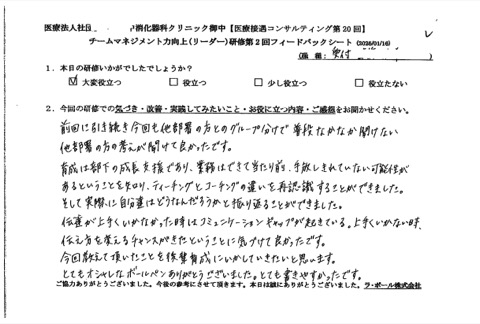 医療法人社団 消化器科クリニック御中【医療接遇コンサルティング第20回】
チームマネジメント力向上(リーダー)研修第2回フィードバックシート(2026/01/16)
(職種: 受付 )
1.本日の研修いかがでしたでしょうか?
☑大変役立つ □役立つ □少し役立つ □役立たない
2.今回の研修での気づき・改善・実践してみたいこと・お役に立つ内容・ご感想をお聞かせください。
前回に引き続き今回も他部署の方とのグループ分けで普段なかなか聞けない
他部署の方の考えが聞けて良かったです。
育成は部下の成長支援であり、業務はできて当たり前、手放しきれていない可能性が
あるということを知り、ティーチングとコーチングの違いを再認識することができました。
そして実際に自分達はどうなんだろうかと振り返ることができました。
伝達が上手くいかなかった時はコミュニケーションギャップが起きている。上手くいかない時、
伝え方を変えるチャンスがきたということに気づけて良かったです。
今回教えて頂いたことを後輩育成にいかしていきたいと思います。
とてもオシャレなボールペンありがとうございました。とても書きやすかったです。
ご協力ありがとうございました。今後の参考にさせて頂きます。本日は誠にありがとうございました。 ラ・ポール株式会社